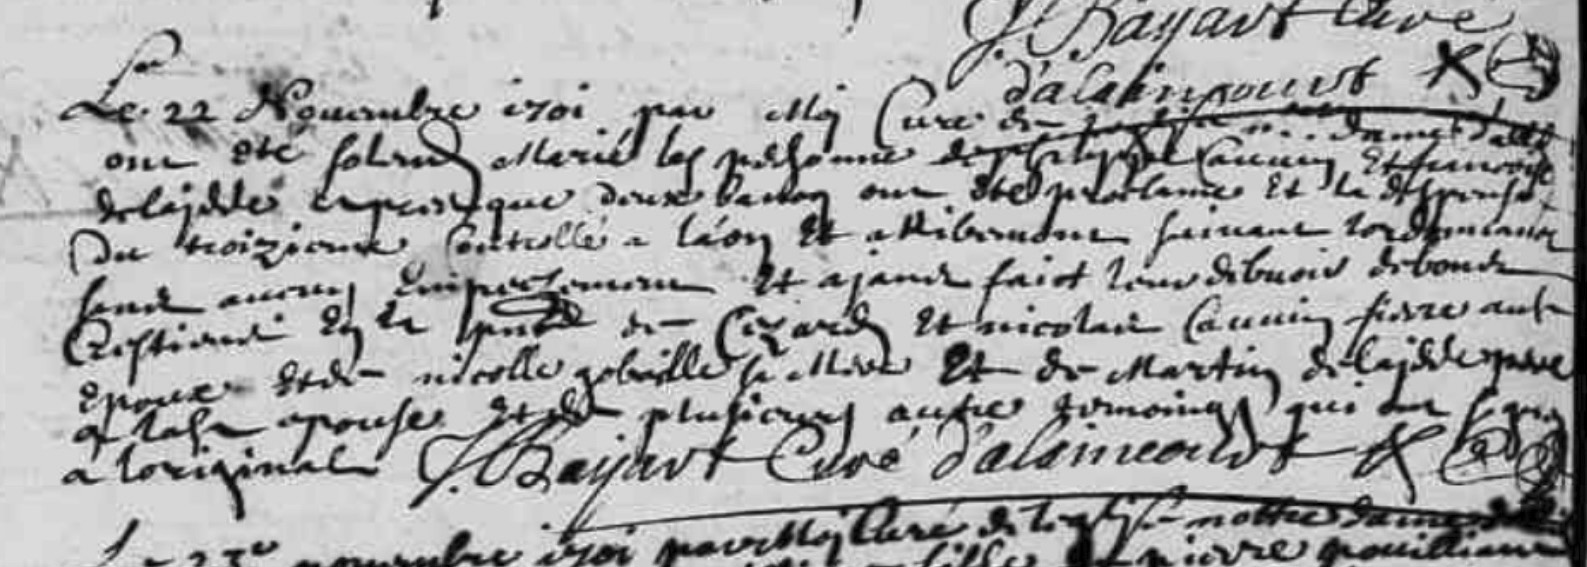 J. Bayart Curé
d'alaincourt
Le 22 Nouembre 1701 par Moy Curé de notre dame d'all
ont eté solemn Marié les personne de philippe Caunin Et francoise
delajdde apres que deux bancq ont eté proclame Et la dispense
Du troizieme Controllé a laon Et a Ribemont suivant lordonnance
sans aucun Empechement Et ajant faict leur debuoir de bons
Crestiens En la pnce de Cezard Et nicolas Caunin frere audt
Epoux Et de nicolle gobaille sa Mere Et de Martin delajdde pere
a lad epouse Et de plusieurs autre temoings qui ont signé
a loriginal J. Bayart Curé d'alaincourt
Le 23e nouembre 1701 par Moy Curé de leglise nottre dame
fille de pierre